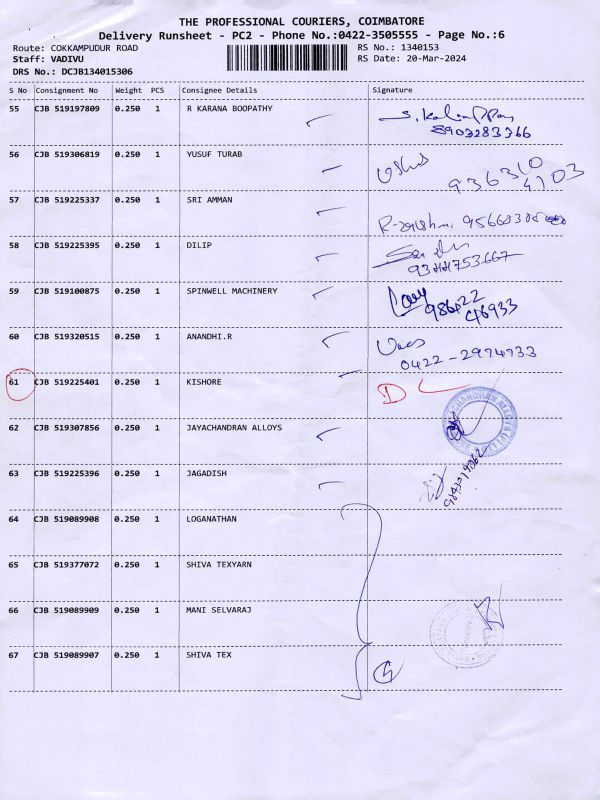 THE PROFESSIONAL COURIERS, COIMBATORE
Delivery Runsheet - PC2 - Phone No.:0422-3505555 - Page No.:6
Route: COKKAMPUDUR ROAD RS No.: 1340153
Staff: VADIVU RS Date: 20-Mar-2024
DRS No.: DCJB134015306
S No Consignment No Weight PCS Consignee Details Signature
55 CJB 519197809 0.250 1 R KARANA BOOPATHY
8903283366
56 CJB 519306819 0.250 1 YUSUF TURAB
936310
4703
57 CJB 519225337 0.250 1 SRI AMMAN
58 CJB 519225395 0.250 1 DILIP
59 CJB 519100875 0.250 1 SPINWELL MACHINERY
986422
46933
60 CJB 519320515 0.250 1 ANANDHI.R
0422-2974733
61 CJB 519225401 0.250 1 KISHORE D
62 CJB 519307856 0.250 1 JAYACHANDRAN ALLOYS
63 CJB 519225396 0.250 1 JAGADISH
64 CJB 519089908 0.250 1 LOGANATHAN
65 CJB 519377072 0.250 1 SHIVA TEXYARN
66 CJB 519089909 0.250 1 MANI SELVARAJ
67 CJB 519089907 0.250 1 SHIVA TEX